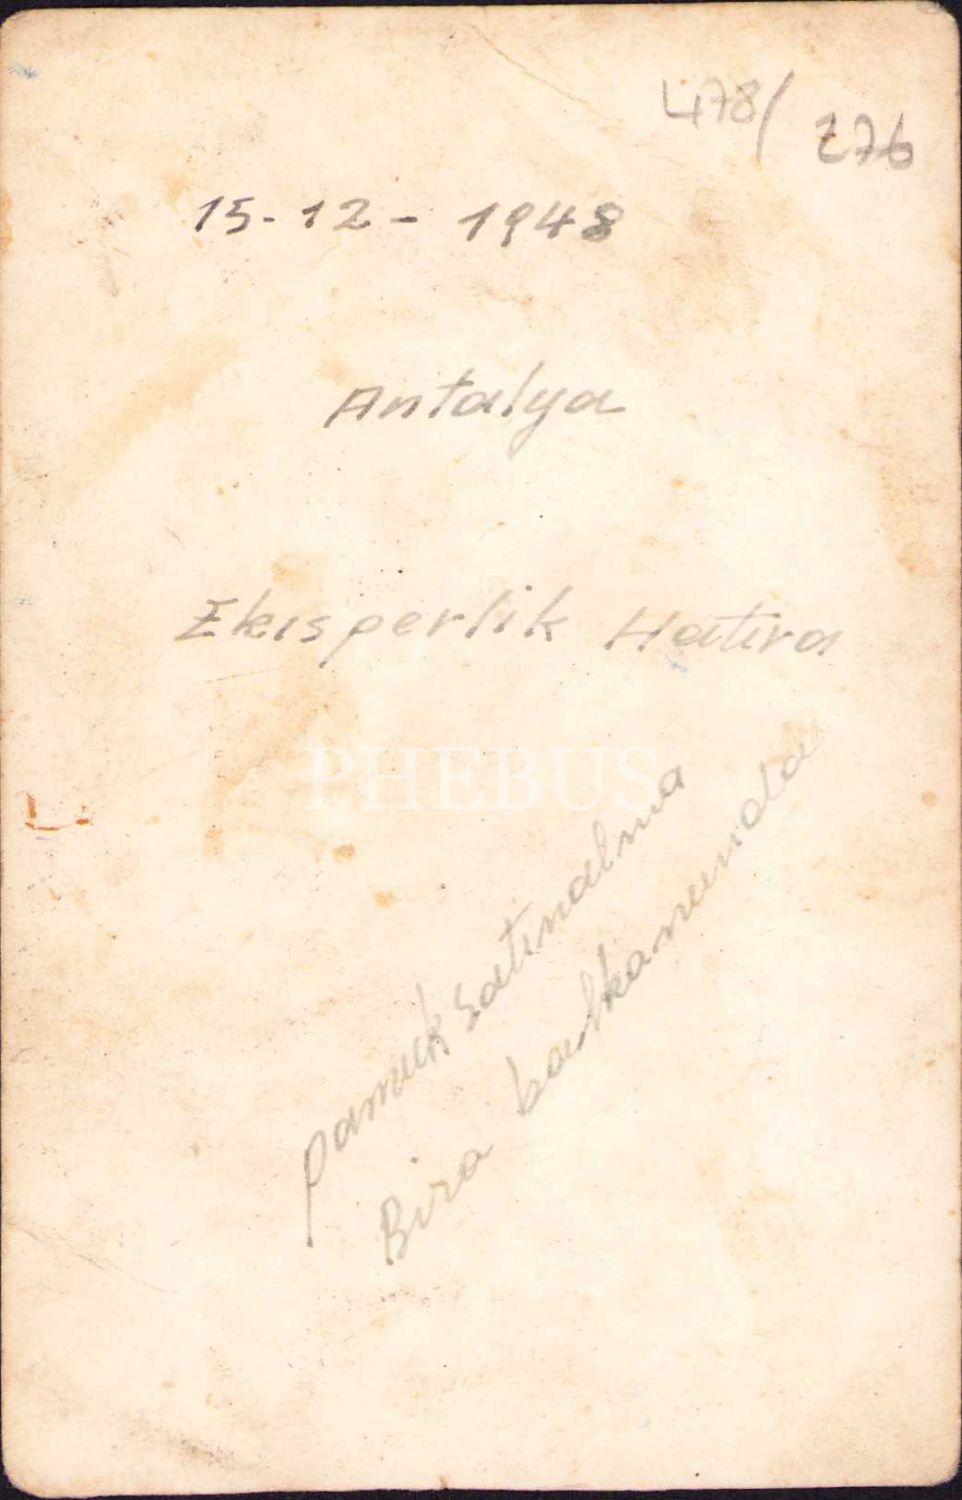 478/276
15-12-1948
Antalya
Eksperlik Hatıra
PHEBUS
pamuk satınalma
Bira balkanunda